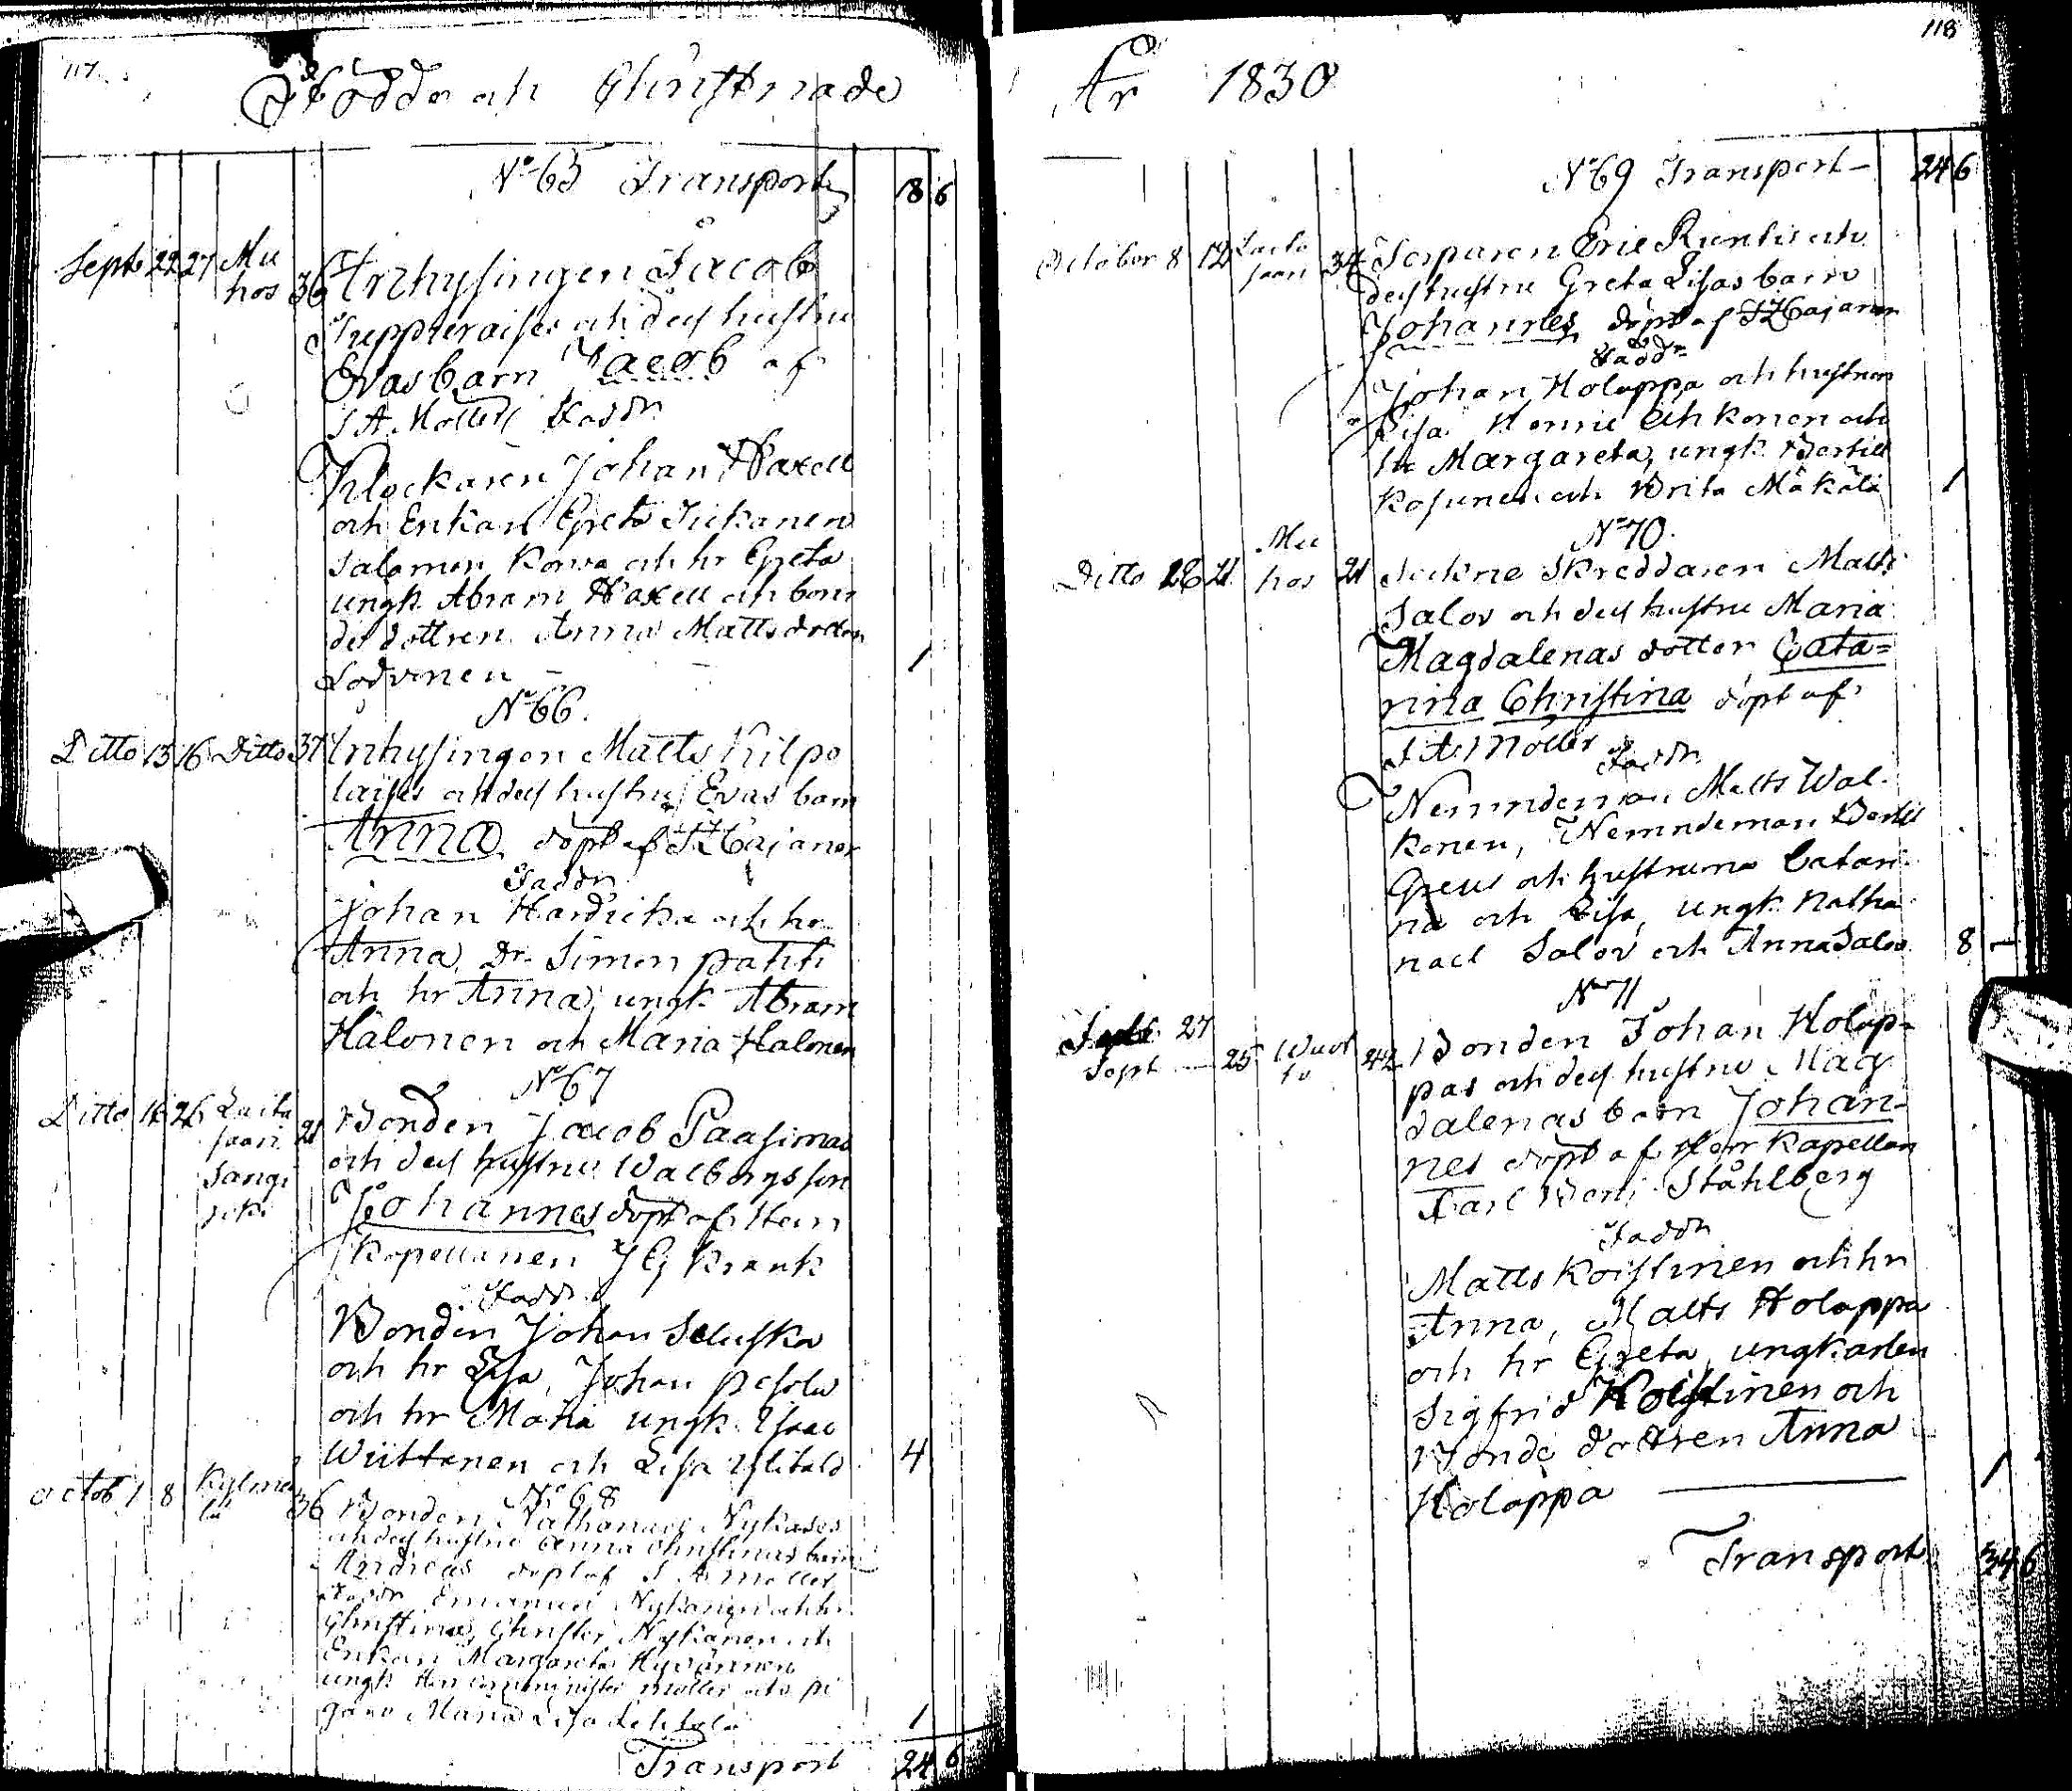 117.
Födde och Christnade
No 65 Transport 18 6
Sept 22 27 Mu
hos 36 Inhysingen Jacob
och dess hustru
Evas barn Jacob af
J A Moller Faddr
Klockaren Johan Waxell
och Enkan Greta Tickanen
Salomon Korva och hr Greta
ungk. Abram Waxell och bon
de dottren Anna Mattsdotter
Lodvinen 1
No 66.
Ditto 13 16 Ditto 37 Inhysingen Matts Kilpo
laises och dess hustru Evas barn
Anna döpt af Cajanus
Faddr
Johan Hardicka och hr
Anna, Dr. Simon pahti
och hr Anna, ungk. Abram
Halonen och Maria Halonen
No 67
Ditto 16 26 Laita
saari 21 Bonden Jacob Paasimaa
Sangi och dess hustru Walborgs son
joki Johannes döpt af Herr
Kapellanen J G Krank
Faddr
Bonden Johan Seluska
och hr Lisa, Johan pesola
och hr Maria ungk. Isaac
Wiittanen och Lisa Ylitalo 4
October 1 8 Kylmä
lä 36 No 68
Bonden Nathanael Nykäses
och dess hustru Anna Christinas barn
Andreas döpt af J A Moller
Faddr Emanuel Nykänen och hr
Christina, Christer Nykänen och
Enkan Margareta Hyvärinen
ungk. Herr Moller och pi
gan Maria Lisa Lehtola 1
Transport 24 6
118
År 1830
No 69 Transport 24 6
October 8 12 Laita
saari 34 Sexparen Eric Runtis och
dess hustru Greta Lisas barn
Johannes döpt af Cajanus
Faddr
Johan Holappa och hustrun
Lisa. Henric Eihkonen och
hr Margareta, ungk. Bertill
Kosunen och Brita Mäkälä 1
No 70.
Mu
Ditto 21 hos 21 Sockne Skreddaren Matts
Salos och dess hustru Maria
Magdalenas dotter Cata=
rina Christina döpt af
J A Moller Faddr
Nemndeman Matts Wal-
konen, Nemndeman Bertil
Greus och hustrurna Catari
na och Lisa, ungk. Natha
nael Salov och Anna Salov 8
No 71
27
Sept 25 Wuot
to 42 Bonden Johan Holap-
pas och dess hustru Mag
dalenas barn Johan-
nes döpt af Herr Kapellan
Karl Benj. Ståhlberg
Faddr
Matts Koistinen och hr
Anna, Matts Holappa
och hr Greta, ungkarlen
Sigfrid Koistinen och
Bonde dottren Anna
Holappa 1
Transport 34 6